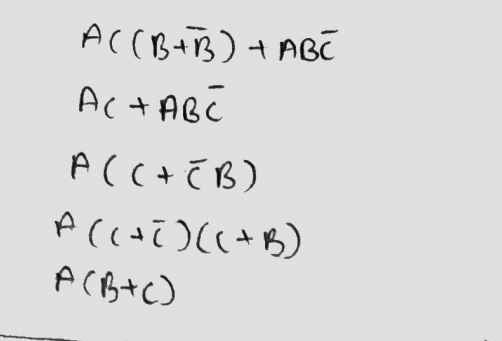 A((B+B̅)+ABC̅
AC+ABC̅
A(C+C̅B)
A(C+C̅)(C+B)
A(B+C)